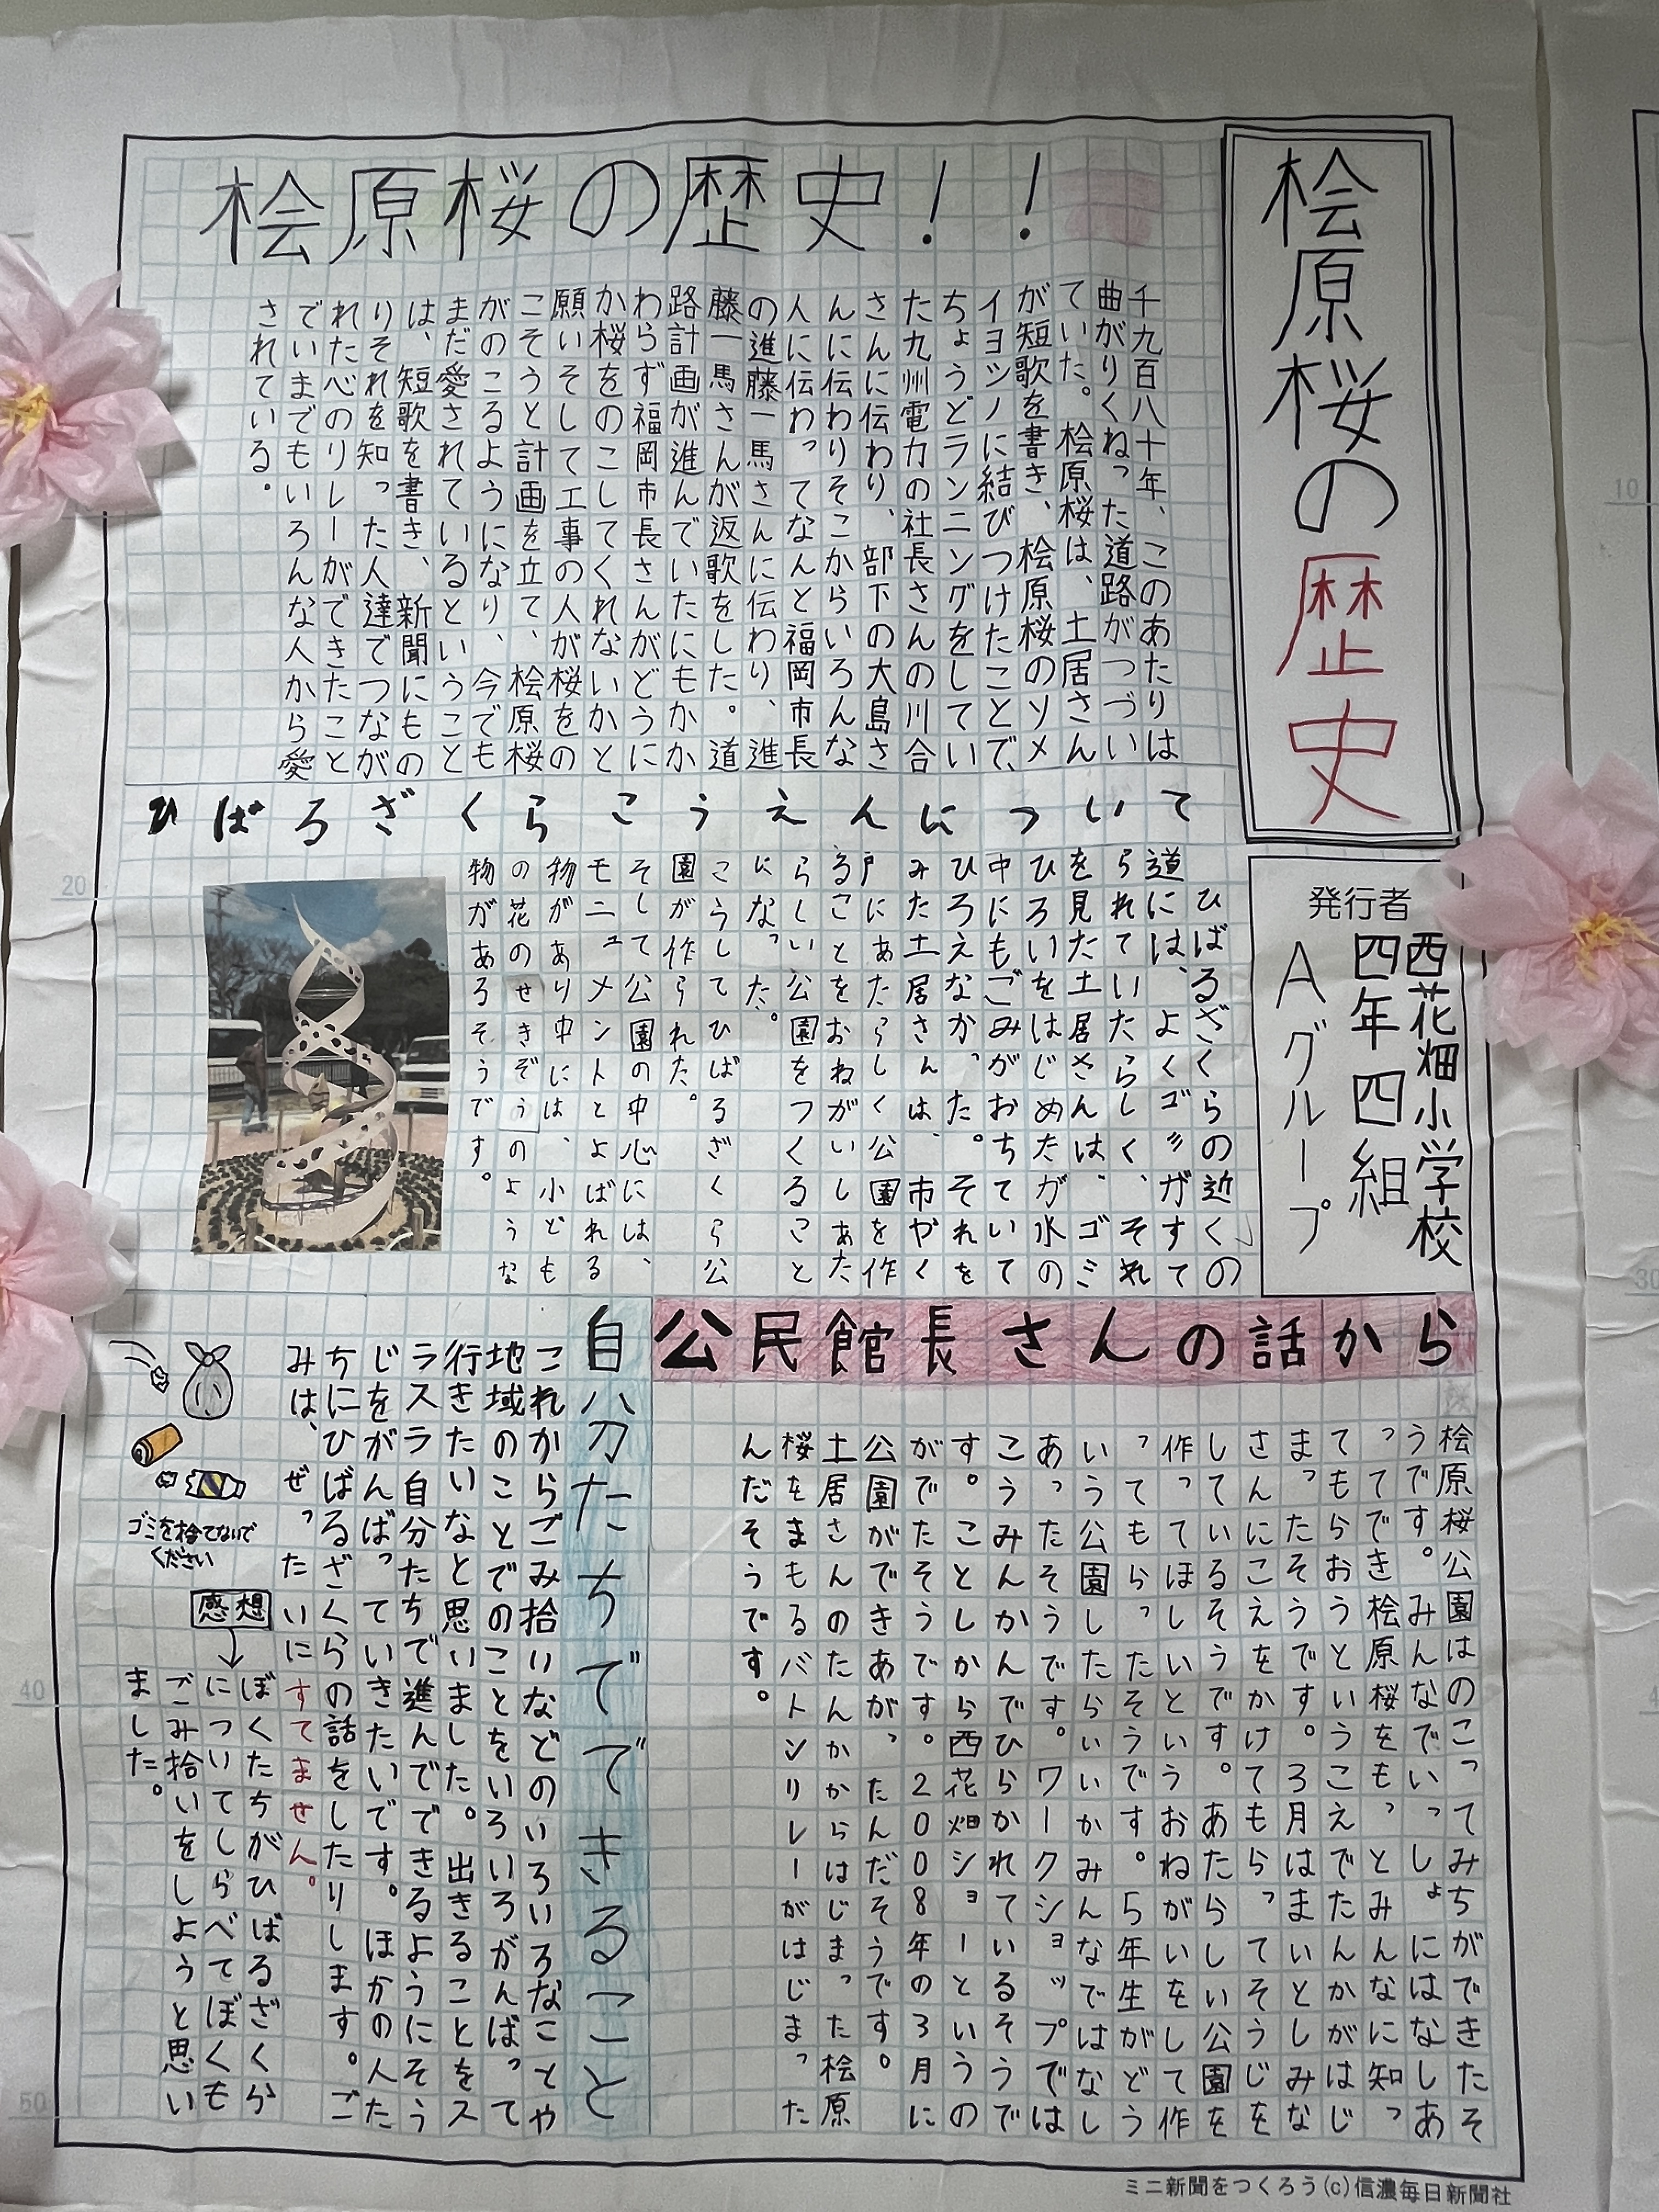 桧原桜の歴史
発行者
西花畑小学校
四年四組
Aグループ
桧原桜の歴史！！
千九百八十年、このあたりは
曲がりくねった道路がつづい
ていた。桧原桜は、土居さん
が短歌を書き、桧原桜のソメ
イヨシノに結びつけたことで、
ちょうどランニングをしてい
た九州電力の社長さんの川合
さんに伝わり、部下の大島さ
んに伝わりそこからいろんな
人に伝わってなんと福岡市長
の進藤一馬さんに伝わり、進
藤一馬さんが返歌をした。道
路計画が進んでいたにもかか
わらず福岡市長さんがどうに
か桜をのこしてくれないかと
願いそして工事の人が桜をの
こそうと計画を立て、桧原桜
がのこるようになり、今でも
まだ愛されているということ
は、短歌を書き、新聞にもの
りそれを知った人達でつなが
れた心のリレーができたこと
でいまでもいろんな人から愛
されている。
ひばるざくらこうえんについて
ひばるざくらの近くの
道には、よくゴミがすて
られていたらしく、それ
を見た土居さんは、ゴミ
ひろいをはじめたが水の
中にもごみがおちていて
ひろえなかった。それを
みた土居さんは、市やく
戸にあたらしく公園を作
ることをおねがいしあた
らしい公園をつくること
になった。
こうしてひばるざくら公
園が作られた。
そして公園の中心には、
モニュメントとよばれる
物があり中には、小ども
の花のせきぞうのような
物があるそうです。
公民館長さんの話から
桧原桜公園はのこってみちができたそ
うです。みんなでいっしょにはなしあ
ってでき桧原桜をもっとみんなに知っ
てもらおうというこえでたんかがはじ
まったそうです。3月はまいとしみな
さんにこえをかけてもらってそうじを
しているそうです。あたらしい公園を
作ってほしいというおねがいをして作
ってもらったそうです。5年生がどう
いう公園したらいいかみんなではなし
あったそうです。ワークショップでは
こうみんかんでひらかれているそうで
す。ことしから西花畑ショーというの
がでたそうです。2008年の3月に
公園ができあがったんだそうです。
土居さんのたんかからはじまった桧原
桜をまもるバトンリレーがはじまった
んだそうです。
自分たちでできること
これからごみ拾いなどのいろいろなことや
地域のことでのことをいろいろがんばって
行きたいなと思いました。出きることをス
ラスラ自分たちで進んでできるようにそう
じをがんばっていきたいです。ほかの人た
ちにひばるざくらの話をしたりします。ご
みは、ぜったいにすてません。
ゴミを捨てないで
ください
感想
ぼくたちがひばるざくら
についてしらべてぼくも
ごみ拾いをしようと思い
ました。
ミニ新聞をつくろう(c)信濃毎日新聞社
10
20
30
40
50